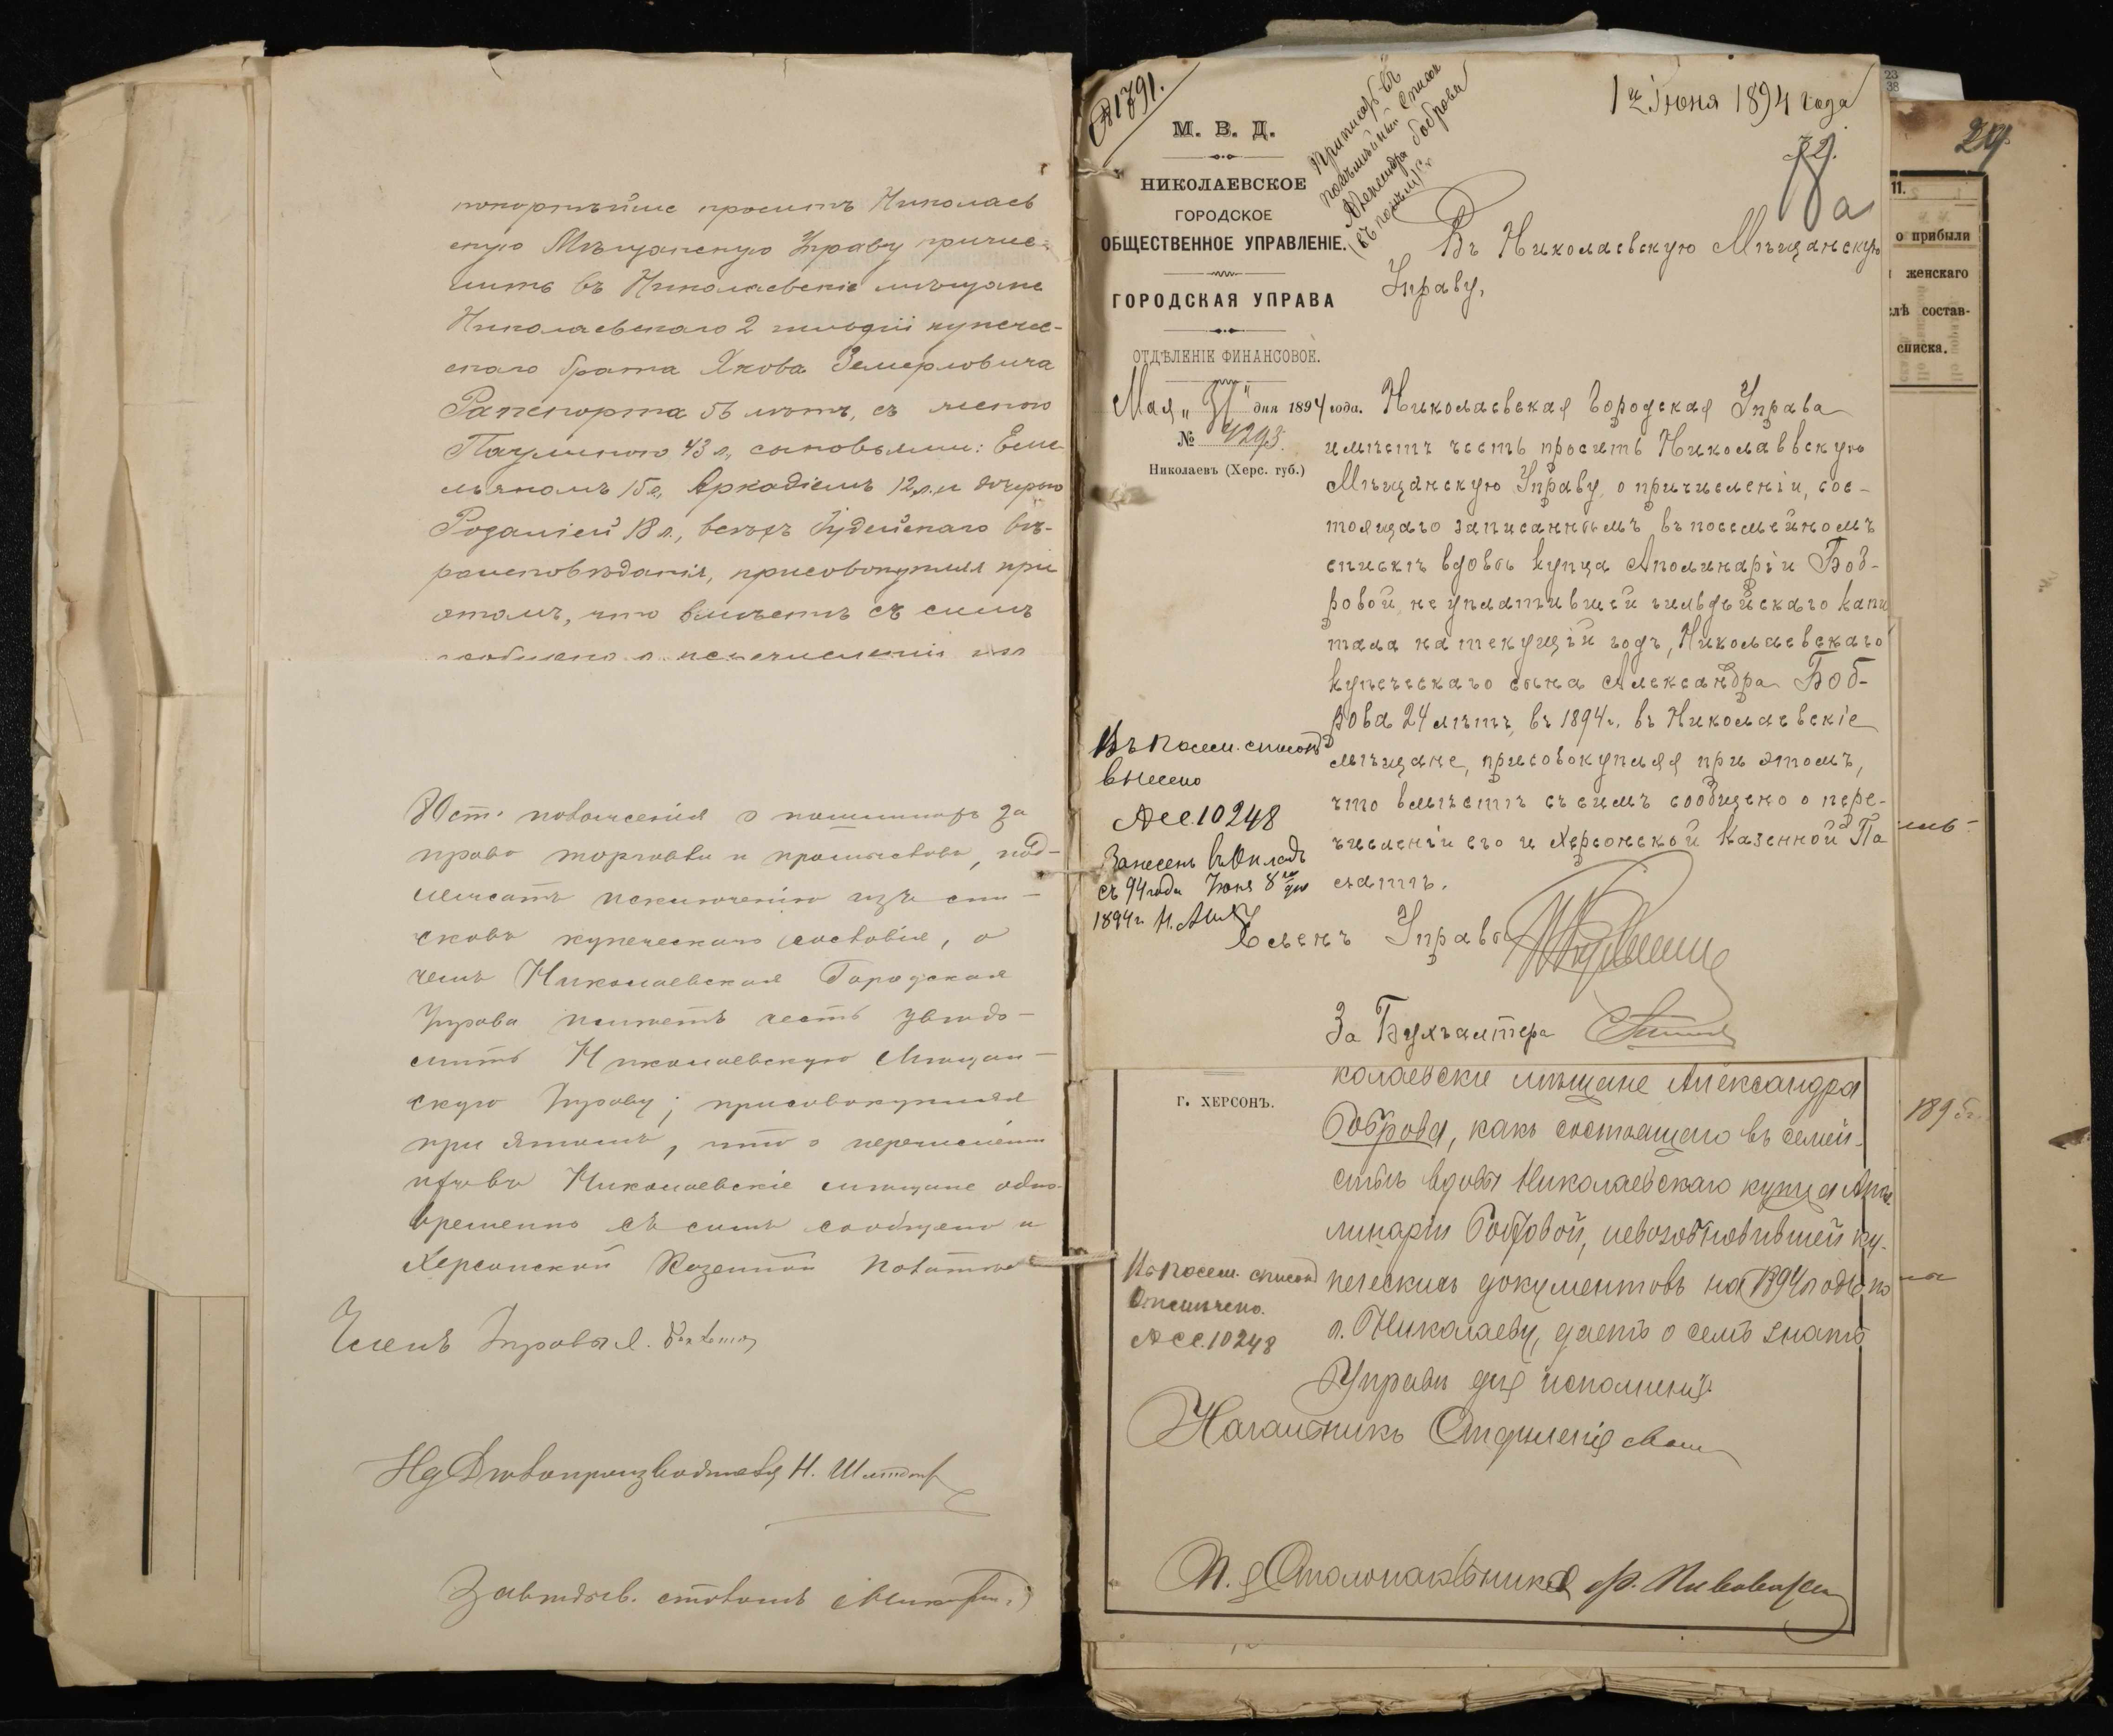 покорнѣйше проситъ Николаев
скую Мѣщанскую Управу причис-
лить въ Николаевскіе мѣщане
Николаевскаго 2 гильдіи купечес-
скаго брата Якова Земерловича
Рапепорта 56 лѣтъ, съ женою
Паулиною 43 л., сыновьями: Еме
льяномъ 15 л., Аркадіемъ 12 л. и дочерью
Розаліей 18 л., всѣхъ Іудейскаго вѣ-
роисповѣданія, присовокупляя при
этомъ, что вмѣстѣ съ симъ
сообщено о перечисленіи
Уст. положенія о пошлинахъ за
право торговли и промысловъ, под-
лежатъ исключенію изъ спи-
сковъ купеческаго сословія, о
чемъ Николаевская Городская
Управа имѣетъ честь увѣдо-
мить Николаевскую Мѣщан-
скую Управу; присовокупляя
при этомъ, что о перечисленіи
Николаевскіе мѣщане одно-
временно съ симъ сообщено и
Херсонской Казенной Палатѣ
Членъ Управы
Дѣлопроизводителя Н.
Завѣдыв. столомъ
№ 1791.
Приписать въ
посемейный списокъ
Александра Боброва
1 Іюня 1894 года
М. В. Д.
НИКОЛАЕВСКОЕ
ГОРОДСКОЕ
ОБЩЕСТВЕННОЕ УПРАВЛЕНІЕ.
ГОРОДСКАЯ УПРАВА
ОТДѢЛЕНІЕ ФИНАНСОВОЕ.
Мая „31" дня 1894 года.
№ 4293.
Николаевъ (Херс. губ.)
Въ Николаевскую Мѣщанскую
Управу,
Николаевская Городская Управа
имѣетъ честь просить Николаевскую
Мѣщанскую Управу о причисленіи, сос-
тоящаго записаннымъ въ посемейномъ
спискѣ вдовы купца Аполинаріи Боб-
ровой, не уплатившей гильдейскаго капи
тала на текущій годъ, Николаевскаго
купеческаго сына Александра Боб-
рова 24 лѣтъ, въ 1894 г. въ Николаевскіе
мѣщане, присовокупляя при этомъ,
что вмѣстѣ съ симъ сообщено о пере-
численіи его и Херсонской Казенной Па
латѣ.
Въ посем. списокъ
внесено
№ 10248
Занесенъ въ окладъ
съ 94 года Іюня 8 дня
1894 г.
Членъ Управы
За Бухгалтера
г. ХЕРСОНЪ.
колаевскіе мѣщане Александра
Боброва, какъ состоящаго въ семей-
ствѣ вдовы Николаевскаго купца Апо
линаріи Бобровой, невозобновившей ку-
печескихъ документовъ на 1894 годъ по
г. Николаеву, даетъ о семъ знать
Управѣ для исполненія.
посем. списокъ
Отмѣчено.
№ 10248
Начальникъ Отдѣленія
И. д. Столоначальника
29
11.
о прибыли
женскаго
слѣ состав-
списка.
1895 г.
23
38